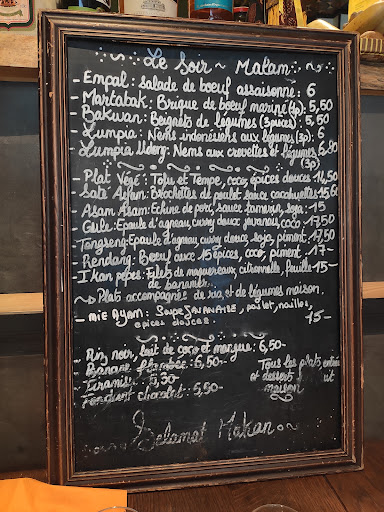 Le Soir ~ Malam
- Empal: Salade de boeuf assaisonnée: 6
- Martabak: Brique de boeuf mariné (3p): 5,50
- Bakwan: Beignets de légumes (3pièces): 5,50
- Lumpia: Nems indonésiens aux légumes (3p): 6
- Lumpia Udang: Nems aux crevettes et légumes 5,80
(3p)
- Plat Végé: Tofu et Tempe, coco, épices douces 14,50
Saté Ayam: Brochettes de poulet sauce cacahuètes 15,60
Asam Asam: Echine de porc, sauce tamarin, soja: 15
Gule: Epaule d'agneau, curry doux javanais, coco 17,50
Tongseng: Epaule d'agneau, curry doux, soja, piment, 17,50
Rendang: Boeuf aux 15 épices, coco, piment 17
Ikan pepes: Filets de maquereaux, citronnelle, feuille 15
de bananier
~> Plats accompagnés de riz et de légumes maison.
- Mie Ayam: Soupe JAVANAISE, poulet, nouilles,
épices douces 15
- Riz noir, lait de coco et mangue: 6,50
- Banane flambée: 6,50
- Tiramisu: 5,50
- Fondant chocolat: 5,50
Tous les plats entrées
et desserts
maison
Selamat Makan